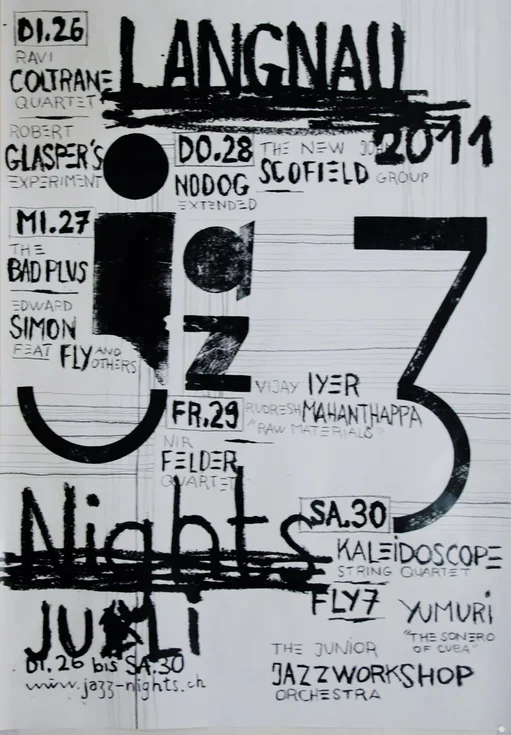 DI.26
RAVI
COLTRANE
QUARTET
ROBERT
GLASPER'S
EXPERIMENT
LANGNAU
2011
DO.28
NDDOG
EXTENDED
THE NEW JOHN
SCOFIELD GROUP
MI.27
THE
BAD PLUS
EDWARD
SIMON
FEAT FLY AND
OTHERS
jazz
VIJAY IYER
RUDRESH MAHANTHAPPA
"RAW MATERIALS"
FR.29
NIR
FELDER
QUARTET
Nights
SA.30
KALEiDOSCOPE
STRING QUARTET
FLY7
YUMURi
"THE SONERO
OF CUBA"
THE JUNIOR
JAZZWORKSHOP
ORCHESTRA
JULi
DI.26 bis SA.30
www.jazz-nights.ch